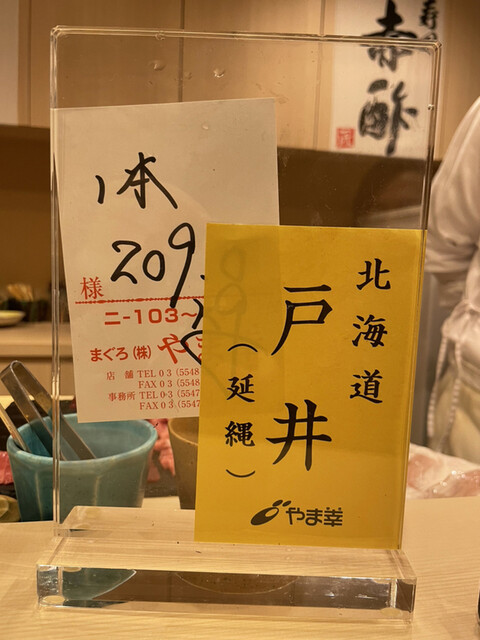 赤酢
1本
209.
様
ニ-103〜
まぐろ(株)やま
店 舗 TEL 03 (5548
FAX 03 (5548
事務所 TEL 03 (5547
FAX 03 (5547
北海道
戸井
(延縄)
やま幸